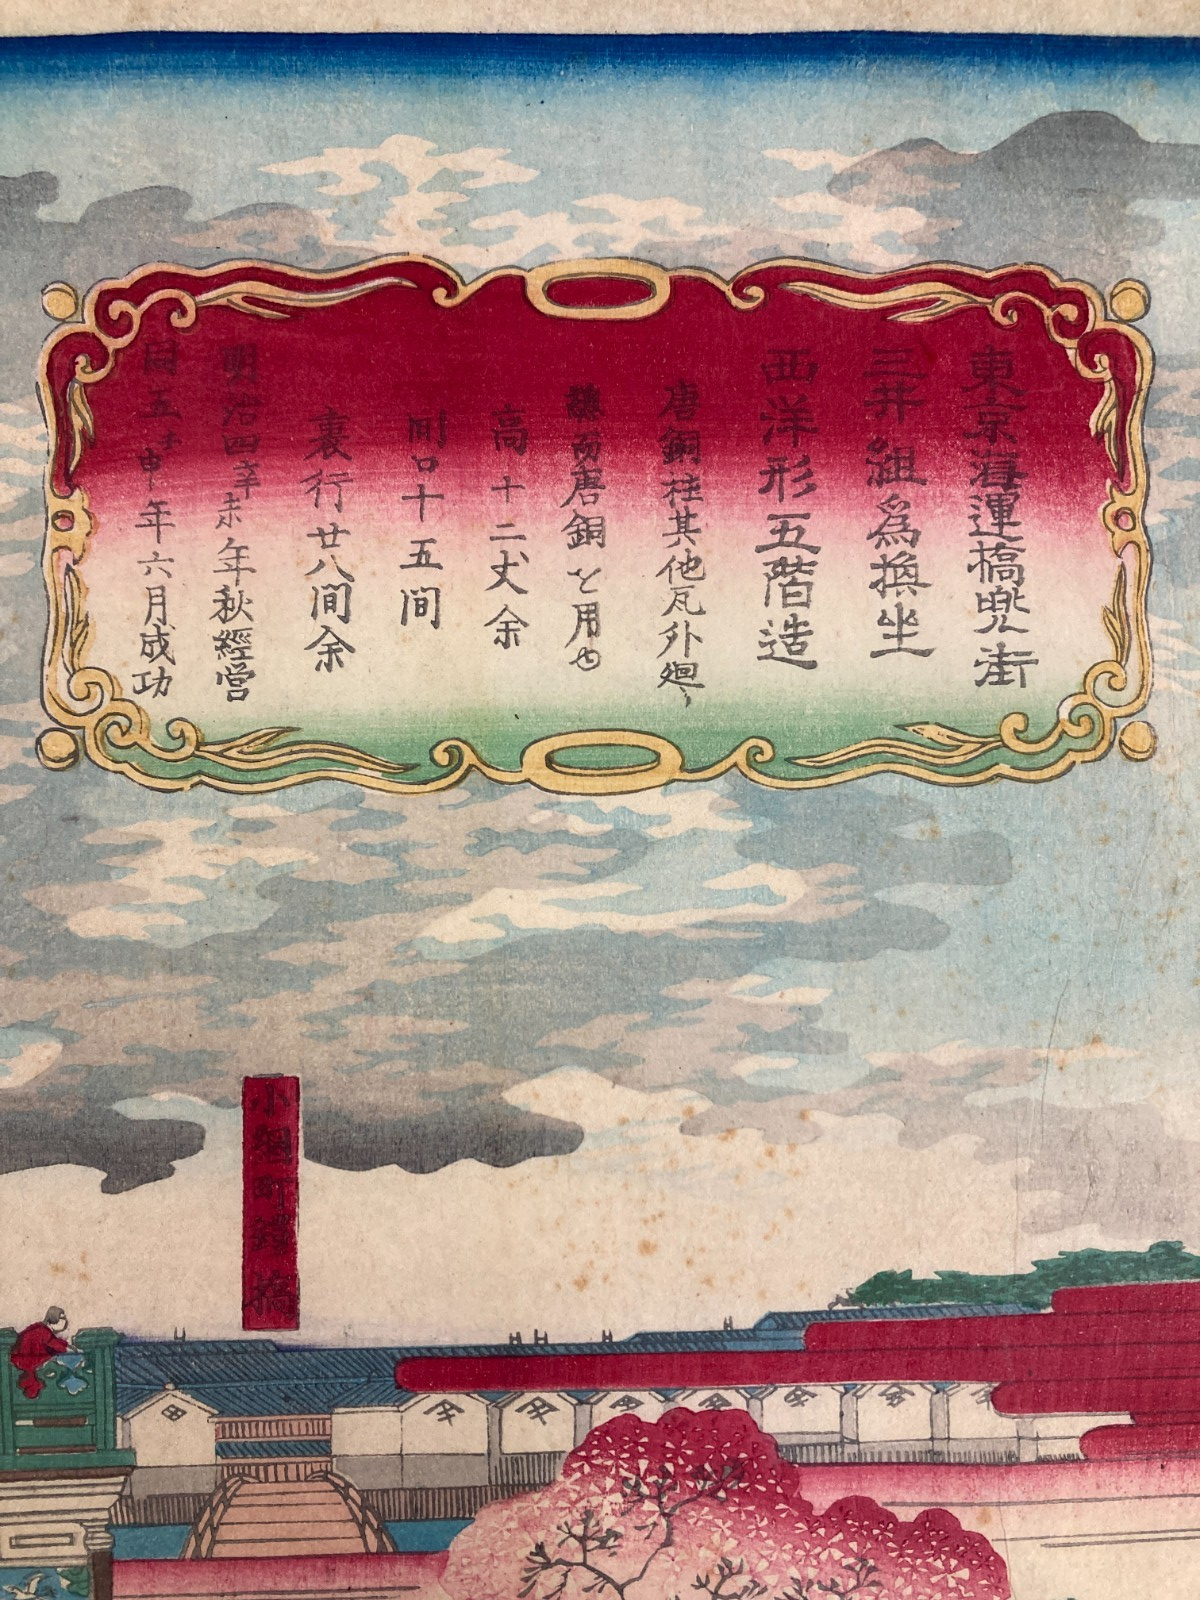 東京海運橋兜街
三井組為換坐
西洋形五階造
唐銅柱其他瓦外廻り
鎌而唐銅を用ゆ
高十二丈余
間口十五間
裏行廿八間余
明治四辛未年秋經営
同五壬申年六月成功
小網町鎧橋